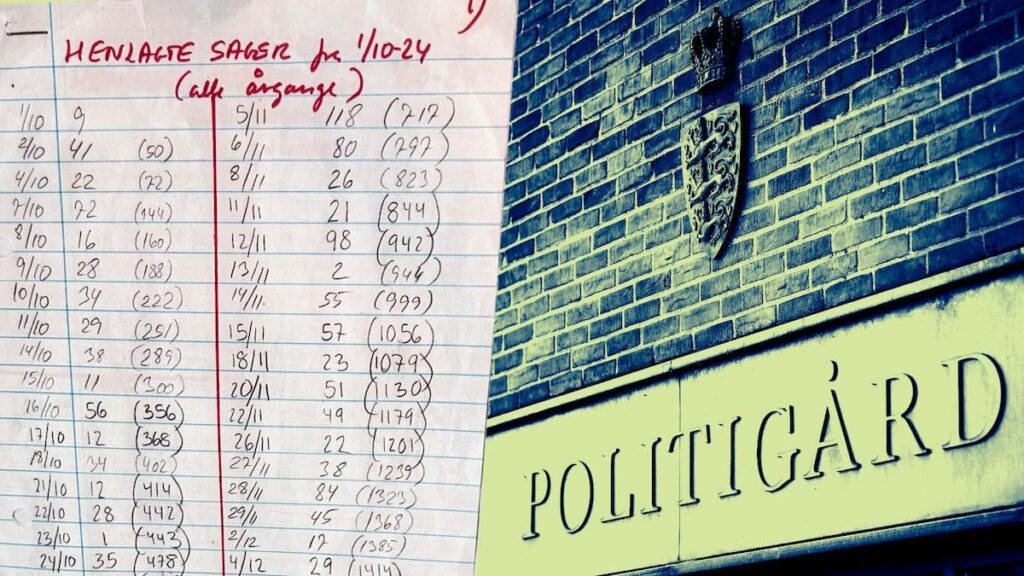 1)
HENLAGTE SAGER fra 1/10-24
(alle årgange)
1/10 9
2/10 41 (50)
4/10 22 (72)
7/10 72 (144)
8/10 16 (160)
9/10 28 (188)
10/10 34 (222)
11/10 29 (251)
14/10 38 (289)
15/10 11 (300)
16/10 56 (356)
17/10 12 (368)
18/10 34 (402)
21/10 12 (414)
22/10 28 (442)
23/10 1 (443)
24/10 35 (478)
5/11 118 (717)
6/11 80 (797)
8/11 26 (823)
11/11 21 (844)
12/11 98 (942)
13/11 2 (944)
14/11 55 (999)
15/11 57 (1056)
18/11 23 (1079)
20/11 51 (1130)
22/11 49 (1179)
26/11 22 (1201)
27/11 38 (1239)
28/11 84 (1323)
29/11 45 (1368)
2/12 17 (1385)
4/12 29 (1414)
POLITIGÅRD